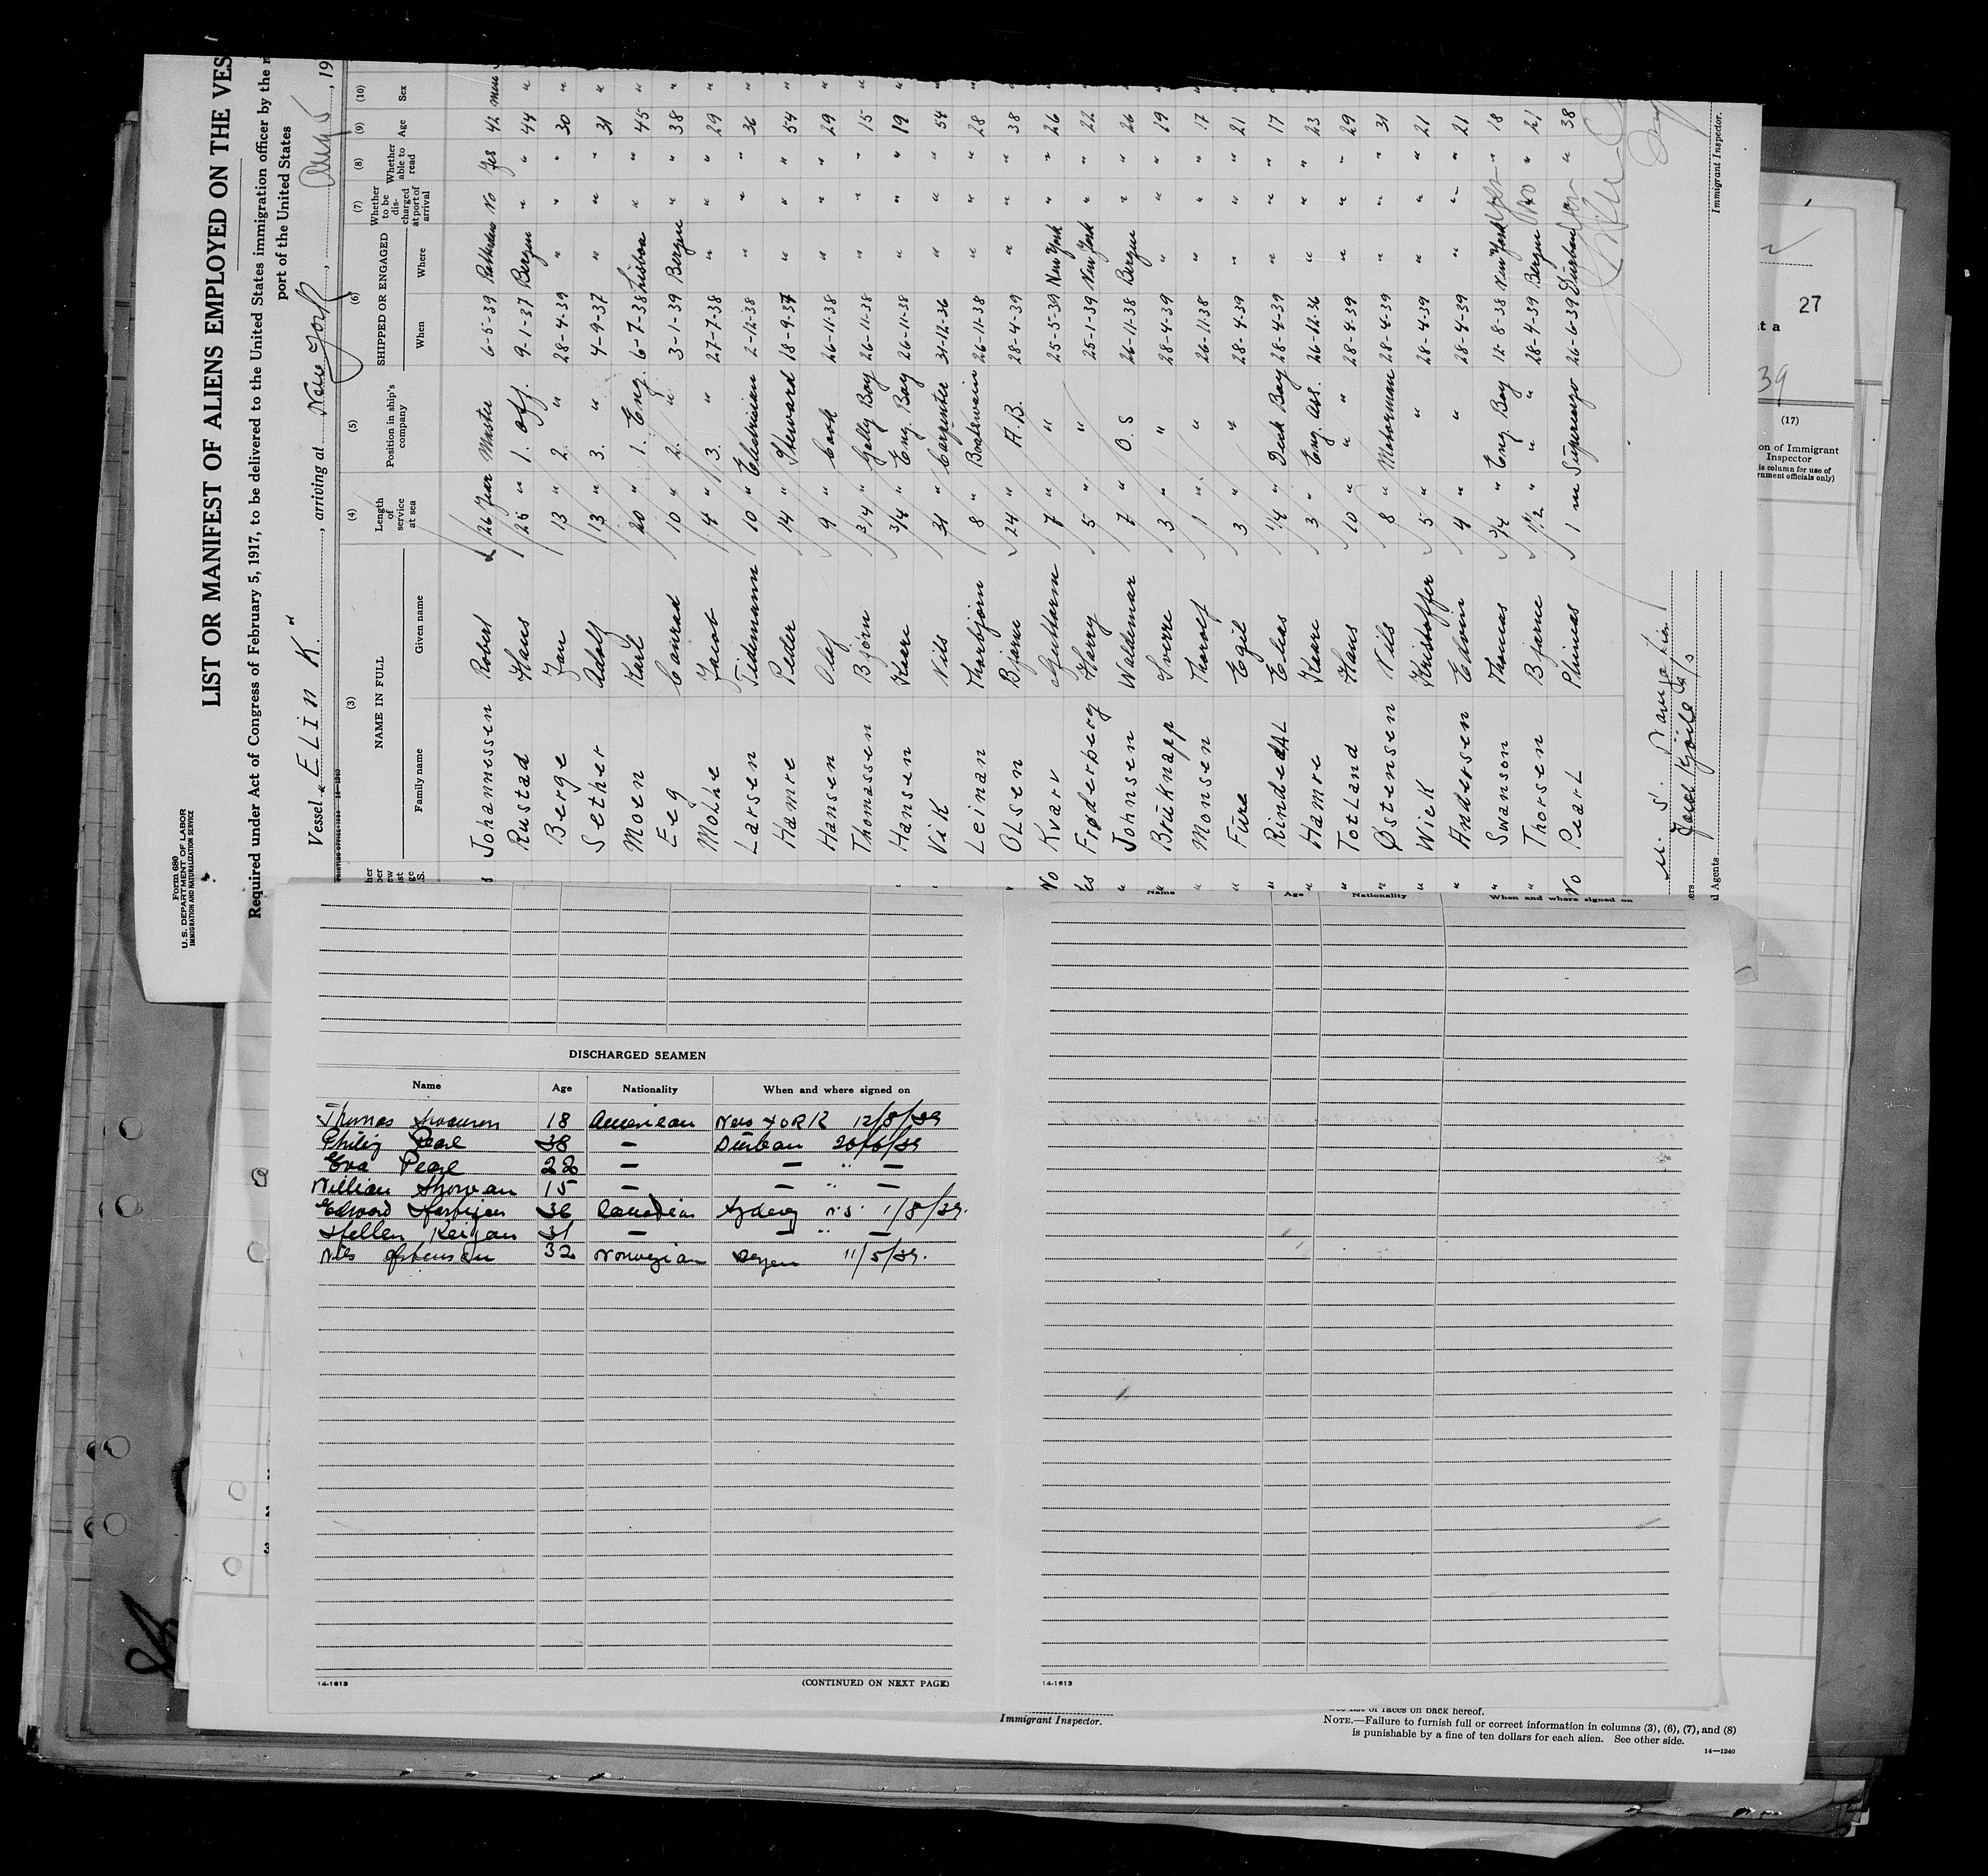 Form 680
U. S. DEPARTMENT OF LABOR
IMMIGRATION AND NATURALIZATION SERVICE
LIST OR MANIFEST OF ALIENS EMPLOYED ON THE VES
Required under Act of Congress of February 5, 1917, to be delivered to the United States immigration officer by the
port of the United States
Vessel „ELIN K.", arriving at New York, 19
(3) (4) (5) (6) (7) (8) (9) (10)
NAME IN FULL Length of service at sea Position in ship's company SHIPPED OR ENGAGED Whether to be discharged at port of arrival Whether able to read Age Sex
Family name Given name When Where
Johannessen Robert 26 Year Master 6-5-39 No Yes 42
Rustad Hans 25 " 1. Off. 9-1-37 Bergen " " 44 "
Berge 13 " 2. " 28-4-39 " " " 30 "
Sether Adolf 13 " 3. " 4-9-37 " " " 31 "
Moen Karl 20 " 1. Eng. 6-7-38 Lisboa " " 45 "
Eeg Conrad 10 " 2. " 3-1-39 Bergen " " 38 "
Jacob 4 " 3. " 27-7-38 " " " 29 "
Larsen Tidemann 10 " Electrician 2-12-38 " " " 36 "
Hamre Peder 14 " Steward 18-9-37 " " " 54 "
Hansen Olaf 9 " Cook 26-11-38 " " " 29 "
Thomassen Bjørn 3/4 " Gally Boy 26-11-38 " " " 15 "
Hansen Kaare 3/4 " Eng. Boy 26-11-38 " " " 19 "
Vik Nils 31 " Carpenter 31-12-36 " " " 54 "
Leinan Thorbjørn 8 " Boatswain 26-11-38 " " " 28 "
No Olsen Bjarne 24 " A.B. 28-4-39 " " " 38 "
Kvarv Guttorm 7 " " 25-5-39 New York " " 26 "
Frøderberg Harry 5 " " 25-1-39 New York " " 22 "
" Johnsen Waldemar 7 " O S 26-11-38 Bergen " " 26 "
" Brüknapp Sverre 3 " " 28-4-39 " " " 19 "
" Monsen Thorolf 1 " " 26-11-38 " " " 17 "
" Füre Egil 3 " " 28-4-39 " " " 21 "
" Rindedal Elias 1/4 " Deck Boy 28-4-39 " " " 17 "
" Hamre Kaare 3 " Eng. Ass. 26-12-36 " " " 23
" Totland Hans 10 " " " 28-4-39 " " " 29
" Østensen Nils 8 " Motorman 28-4-39 " " " 31
" Wick Kristoffer 5 " " 28-4-39 " " " 21
" Andersen Edvin 4 " " 28-4-39 " " " 21
" Swanson Thomas 3/4 " Eng. Boy 12-8-38 New York " 18
" Thorsen Bjarne 1 1/2 " " " 28-4-39 Bergen No " 21
No Pearl Phineas 1 m Supercargo 26-6-39 Durban " 38
Immigrant Inspector.
l Agents
27
t a
39
(17)
on of Immigrant
Inspector
is column for use of
rnment officials only)
Name Age Nationality When and where signed on
DISCHARGED SEAMEN
Name Age Nationality When and where signed on
Thomas 18 American New YORK 12/8/39
Philip Pearl 38 — Dürban 26/6/39
Eva Pearl 28 — — " —
William 15 — — " —
Edward 36 Canadian Sydney N.S. 1/8/39.
Hellen 31 — — " —
Nils Østensen 32 Norwegian Bergen 11/5/39.
14-1613
(CONTINUED ON NEXT PAGE)
14-1613
Immigrant Inspector.
See list of races on back hereof.
NOTE.—Failure to furnish full or correct information in columns (3), (6), (7), and (8)
is punishable by a fine of ten dollars for each alien. See other side.
14—1240